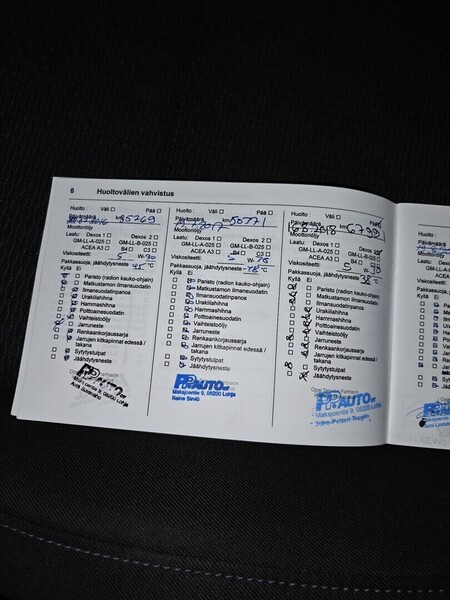 6 Huoltovälien vahvistus
Huolto: Väli ☐ Pää ☐
Päivämäärä km 35269
Moottoriöljy
Laatu: Dexos 1 ☐ Dexos 2 ☐
GM-LL-A-025 ☐ GM-LL-B-025 ☐
ACEA A3 ☐ B4 ☐ C3 ☐
Viskositeetti: 5 W- 30
Pakkassuoja, jäähdytysneste °C
Kyllä Ei
Paristo (radion kauko-ohjain)
Matkustamon ilmansuodatin
Ilmansuodatinpanos
Urakiilahihna
Hammashihna
Polttoainesuodatin
Vaihteistoöljy
Jarruneste
Renkaankorjaussarja
Jarrujen kitkapinnat edessä / takana
Sytytystulpat
Jäähdytysneste
PP-AUTO
Huolto: Väli ☐ Pää ☐
Päivämäärä 2017 km 50771
Moottoriöljy
Laatu: Dexos 1 ☐ Dexos 2 ☐
GM-LL-A-025 ☐ GM-LL-B-025 ☐
ACEA A3 ☐ B4 ☐ C3 ☐
Viskositeetti: 5 W-
Pakkassuoja, jäähdytysneste °C
Kyllä Ei
Paristo (radion kauko-ohjain)
Matkustamon ilmansuodatin
Ilmansuodatinpanos
Urakiilahihna
Hammashihna
Polttoainesuodatin
Vaihteistoöljy
Jarruneste
Renkaankorjaussarja
Jarrujen kitkapinnat edessä / takana
Sytytystulpat
Jäähdytysneste
PP-AUTO
Maksjoentie 9, 08200 Lohja
Huolto: Väli ☐ Pää
Päivämäärä 2018 km
Moottoriöljy
Laatu: Dexos 1 ☐ Dexos 2
GM-LL-A-025 ☐ GM-LL-B-025 ☐
ACEA A3 ☐ B4 ☐ C3 ☐
Viskositeetti: 5 W- 30
Pakkassuoja, jäähdytysneste °C
Kyllä Ei
Paristo (radion kauko-ohjain)
Matkustamon ilmansuodatin
Ilmansuodatinpanos
Urakiilahihna
Hammashihna
Polttoainesuodatin
Vaihteistoöljy
Jarruneste
Renkaankorjaussarja
Jarrujen kitkapinnat edessä / takana
Sytytystulpat
Jäähdytysneste
PP-AUTO
Maksjoentie 9, 08200 Lohja